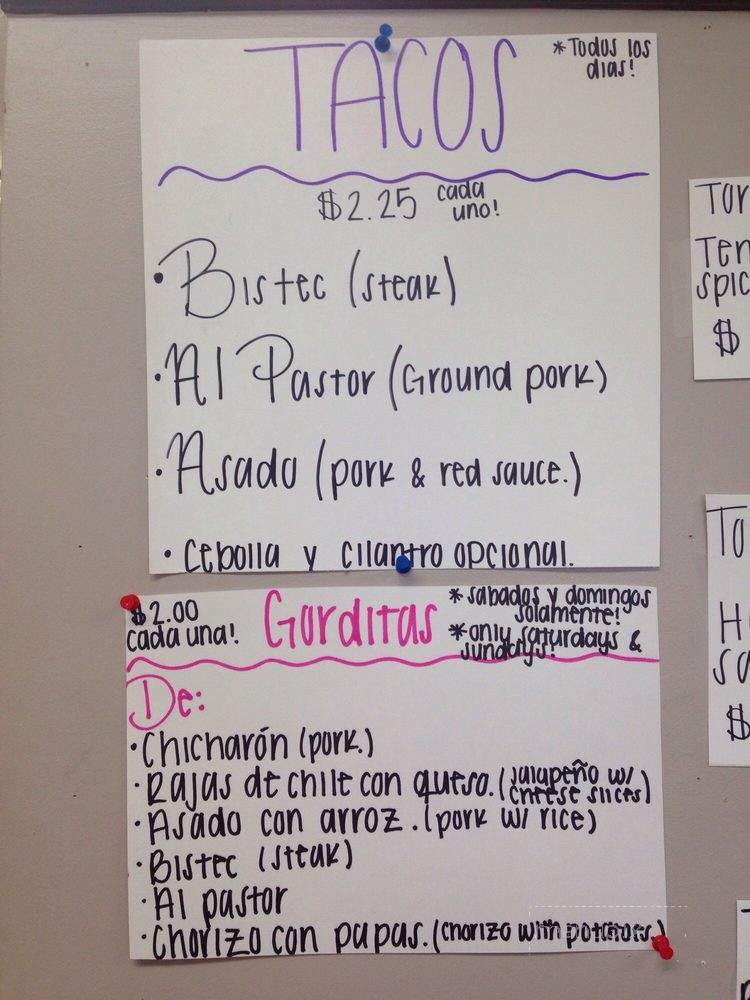 TACOS
*Todos los
dias!
$2.25 cada
uno!
• Bistec (steak)
• Al Pastor (Ground pork)
• Asado (pork & red sauce.)
• Cebolla y cilantro opcional.
$2.00
cada una!
Gorditas
*sabados y domingos
solamente!
*only saturdays &
sundays!
De:
• Chicharón (pork.)
• Rajas de chile con queso. (jalapeño w/
cheese slices)
• Asado con arroz. (pork w/ rice)
• Bistec (steak)
• Al pastor
• Chorizo con papas. (chorizo with potatoes.)
Tor
Ten
spic
$
To
H
sa
$